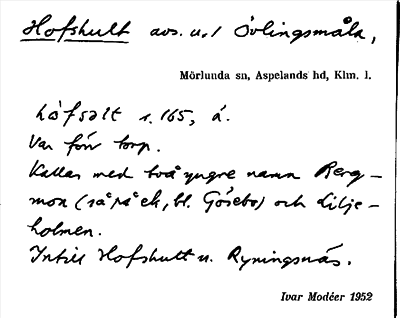 Hofshult avs. u. / Övlingsmåla,
Mörlunda sn, Aspelands hd, Klm. l.
s. 165, å.
Var förr torp.
Kallas med två yngre namn Berg-
mon (så på ek, bl. Gösebo) och Lilje-
holmen.
Intill Hofshult u. Ryningsnäs.
Ivar Modéer 1952